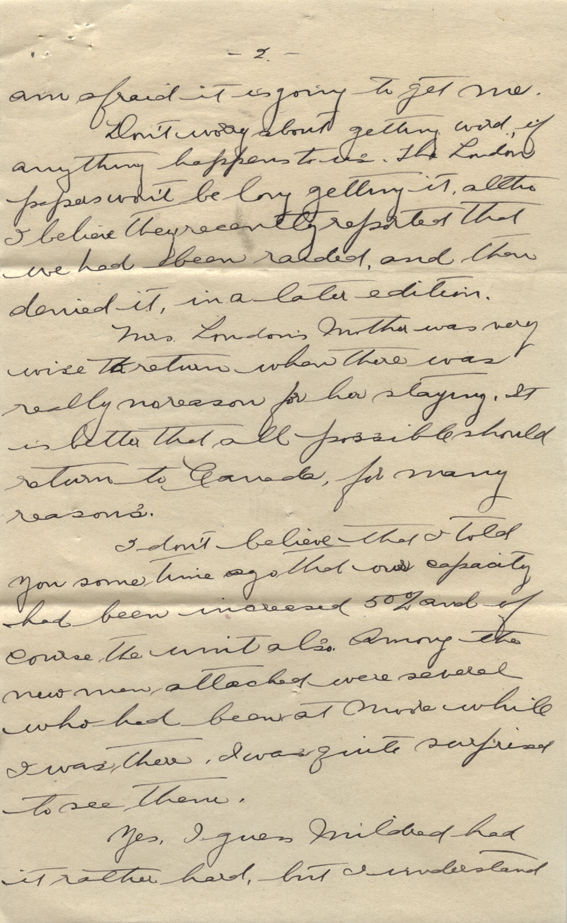 - 2. -
am afraid it is going to get me.
Don't worry about getting word, if
anything happens to us. The London
papers won't be long getting it, altho
I believe they recently reported that
we had been raided, and then
denied it, in a later edition.
Mrs. London's Mother was very
wise to return when there was
really no reason for her staying. It
is better that all possible should
return to Canada, for many
reasons.
I don't believe that I told
you some time ago that our capacity
had been increased 50% and of
course the unit also. Among the
new men attached were several
who had been at Moore while
I was there. I was quite surprised
to see them.
Yes, I guess Mildred had
it rather hard, but I understand